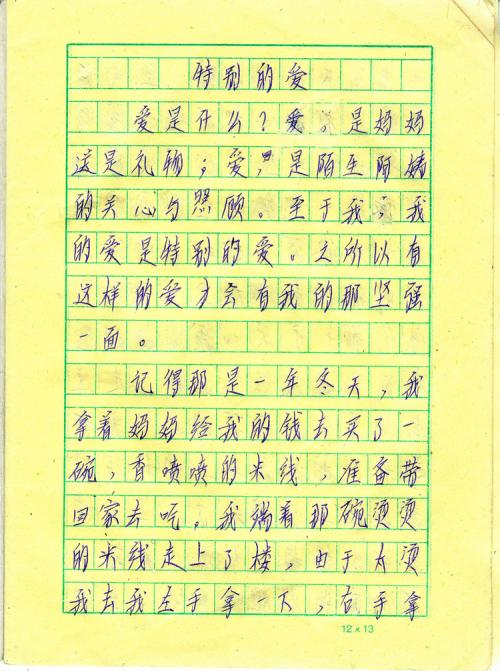 特别的爱
爱是什么？爱，是妈妈
送是礼物；爱，是陌生阿姨
的关心与照顾。至于我，我
的爱是特别的爱。之所以有
这样的爱才会有我的那坚强
一面。
记得那是一年冬天，我
拿着妈妈给我的钱去买了一
碗，香喷喷的米线，准备带
回家去吃。我端着那碗烫烫
的米线走上了楼，由于太烫
我去我左手拿一下，右手拿
12×13